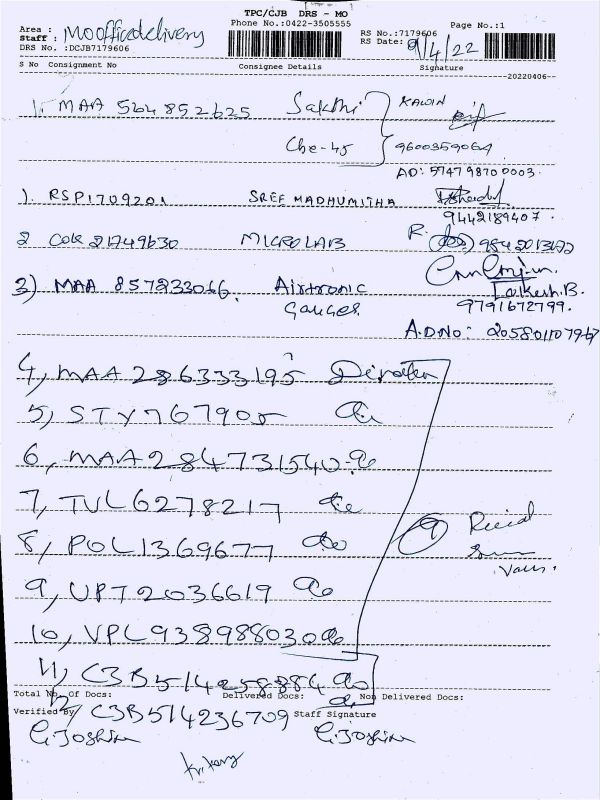 TPC/CJB DRS - MO
Area : Phone No.:0422-3505555 Page No.:1
Staff : Mooffice delivery RS No.:7179606
DRS No. :DCJB7179606 RS Date: 9/4/22
S No Consignment No Consignee Details Signature
20220406
1. MAA 564852625 Sakthi KAWIN
Cbe-45 9600359064
AD: 574798700003.
1. RSP1709201 SREE MADHUMITHA
9442189407.
2 COK 21749630 MICROLAB R.
3) MAA 857233066. Airtronic Gauges Lokesh.B.
9791672799.
A.D.NO: 20580110796
4, MAA 286333195 Director
5) STY767905 do
6, MAA284731540 do
7, TUL6278217 do
8, POL1369677 do 9
9, UPT2036619 do
10, VPL938988030 do
11, C3B514258884 do
Total No. Of Docs: Delivered Docs: Non Delivered Docs:
12, C3B514236709 do
Verified By Staff Signature
G. Joshin G. Joshin